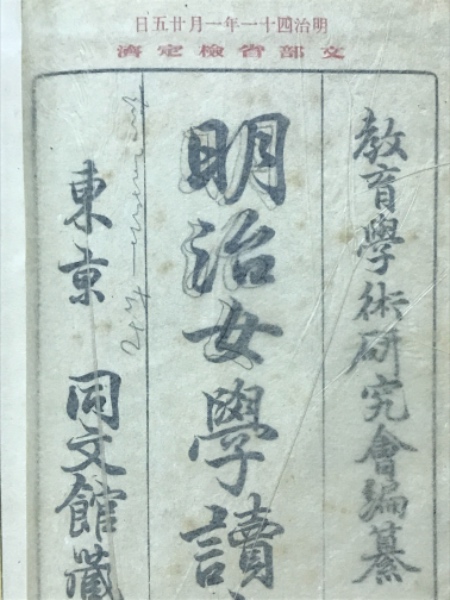 明治四十一年一月廿五日
文部省檢定濟
教育學術研究會編纂
明治女學讀
東京 同文館藏